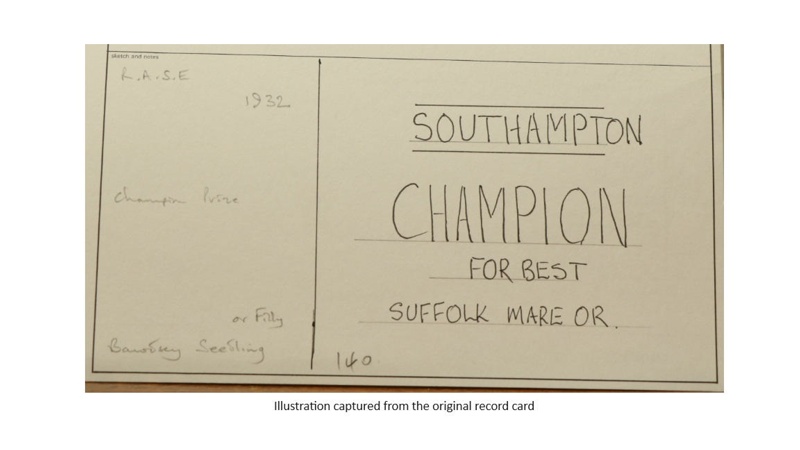 sketch and notes
R.A.S.E
1932
Champion Prize
or Filly
Bawdsey Seedling
SOUTHAMPTON
CHAMPION
FOR BEST
SUFFOLK MARE OR.
140
Illustration captured from the original record card